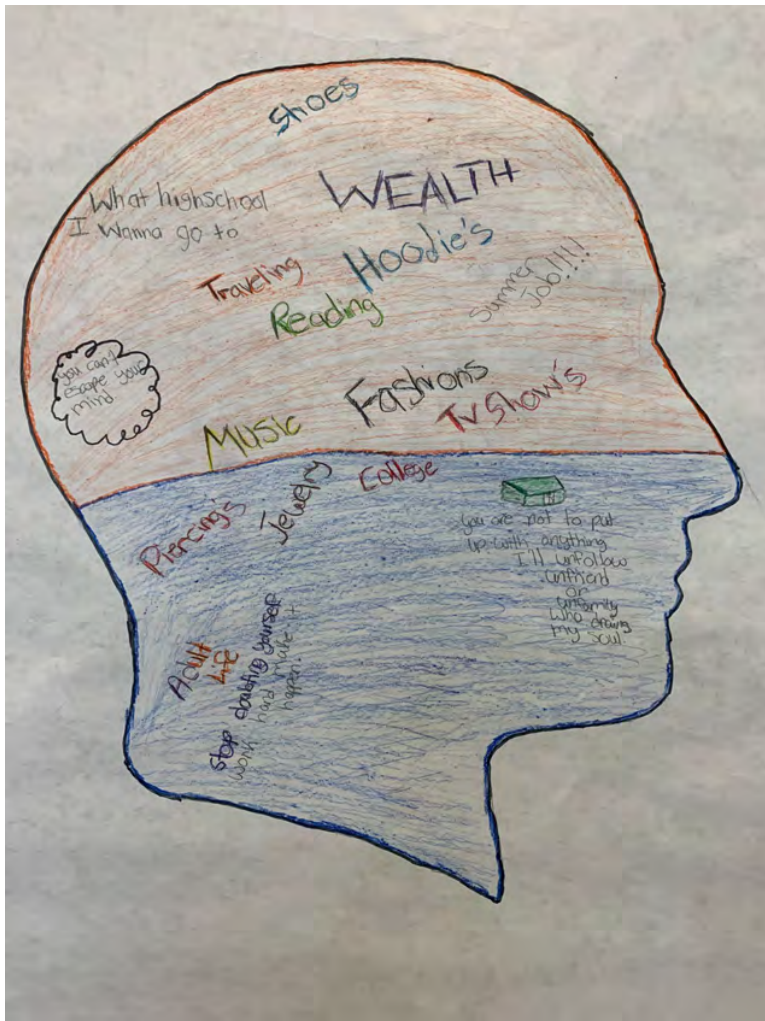 Shoes
What highschool
I wanna go to
WEALTH
Hoodie's
Traveling
Reading
Summer
Job!!!!
you can't
escape your
mind
Fashions
Tv Show's
Music
College
Jewelry
Piercing's
you are not to put
up with anything
I'll unfollow
unfriend
or
unfamily
who
my soul.
Adult
Life
Stop doubting yourself
work hard make it
happen.